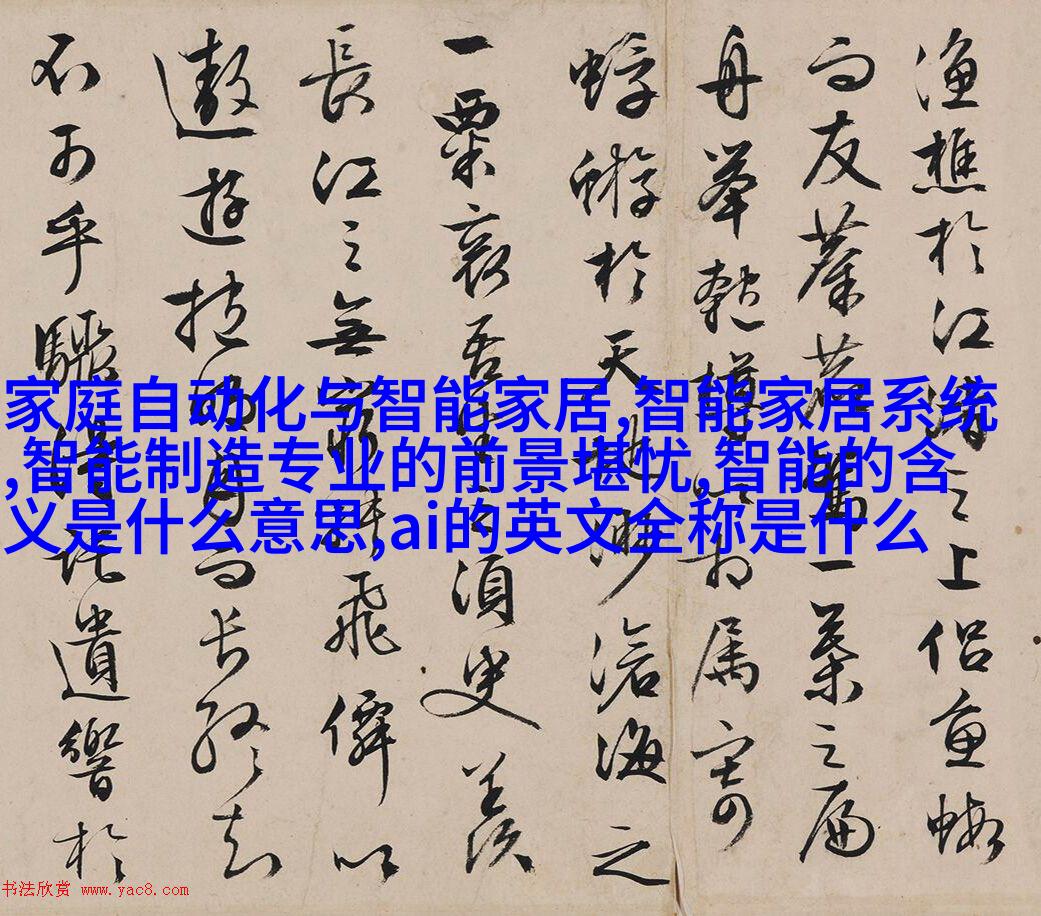 漁樵於江渚之上侶魚蝦
而友麋鹿一葉之扁
舟舉匏樽以相屬寄
蜉蝣於天地渺滄海之
一粟哀吾生之須臾羨
長江之無窮挾飛僊以
遨遊抱明月而長終知
不可乎驟得託遺響於
家庭自动化与智能家居,智能家居系统
,智能制造专业的前景堪忧,智能的含
义是什么意思,ai的英文全称是什么
书法欣赏 www.yac8.com